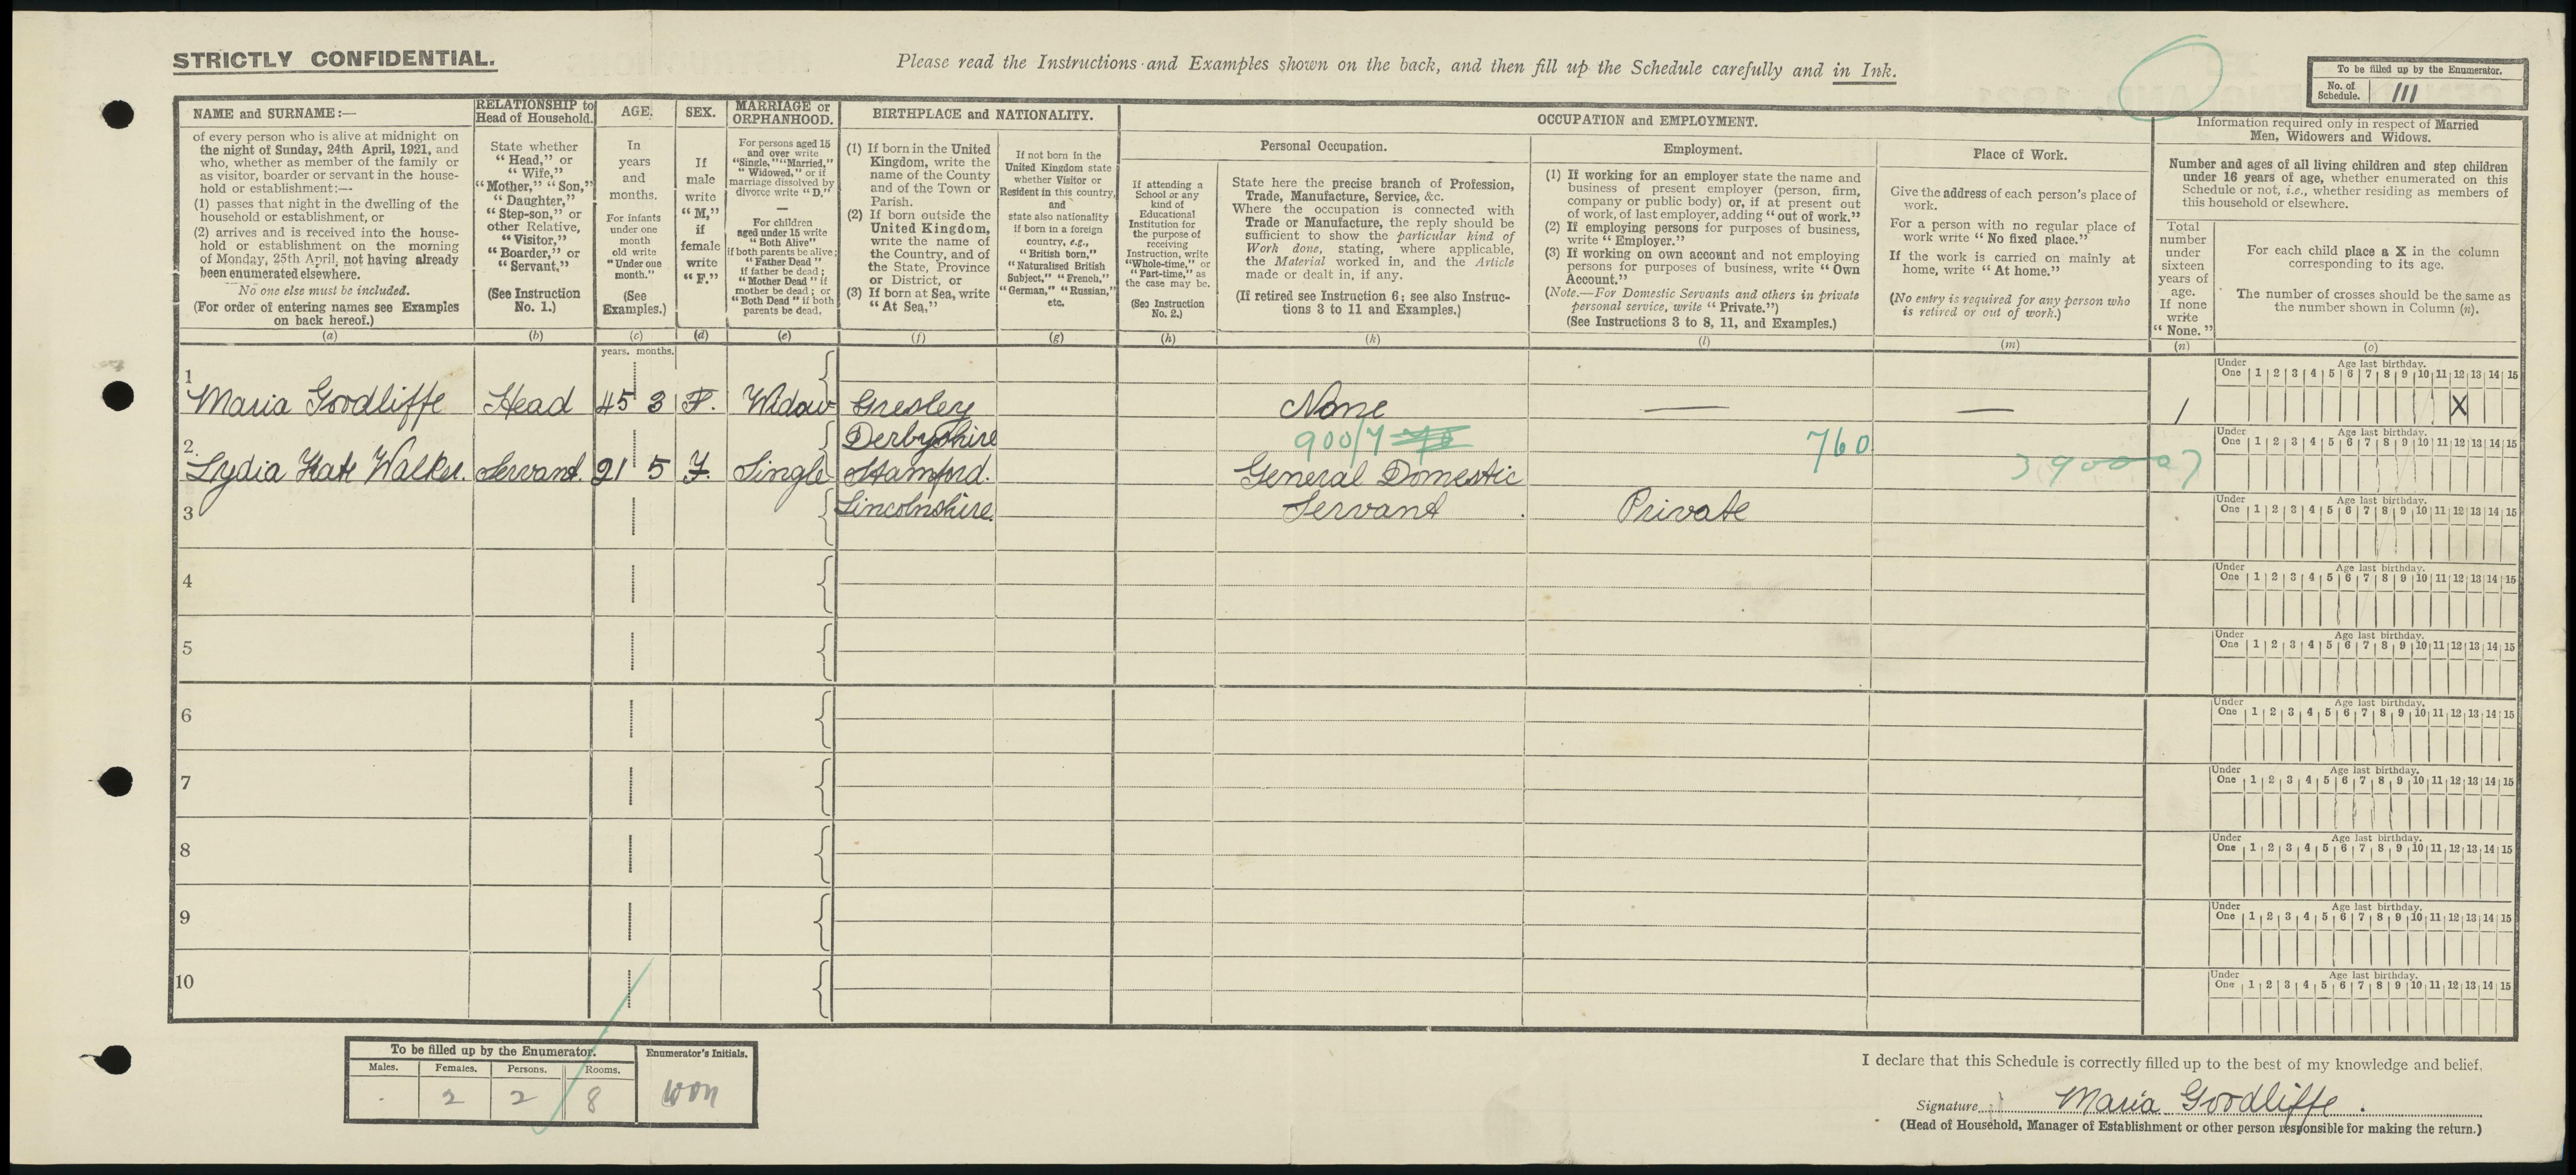 STRICTLY CONFIDENTIAL.
Please read the Instructions and Examples shown on the back, and then fill up the Schedule carefully and in Ink.
To be filled up by the Enumerator.
No. of Schedule. 111
NAME and SURNAME:—
of every person who is alive at midnight on
the night of Sunday, 24th April, 1921, and
who, whether as member of the family or
as visitor, boarder or servant in the house-
hold or establishment:—
(1) passes that night in the dwelling of the
household or establishment, or
(2) arrives and is received into the house-
hold or establishment on the morning
of Monday, 25th April, not having already
been enumerated elsewhere.
No one else must be included.
(For order of entering names see Examples
on back hereof.)
(a)
RELATIONSHIP to
Head of Household.
State whether
"Head," or
"Wife,"
"Mother," "Son,"
"Daughter,"
"Step-son," or
other Relative,
"Visitor,"
"Boarder," or
"Servant."
(See Instruction
No. 1.)
(b)
AGE.
In
years
and
months.
For infants
under one
month
old write
"Under one
month."
(See
Examples.)
(c)
SEX.
If
male
write
"M,"
if
female
write
"F."
(d)
MARRIAGE or
ORPHANHOOD.
For persons aged 15
and over write
"Single," "Married,"
"Widowed," or if
marriage dissolved by
divorce write "D."
—
For children
aged under 15 write
"Both Alive"
if both parents be alive;
"Father Dead"
if father be dead;
"Mother Dead" if
mother be dead; or
"Both Dead" if both
parents be dead.
(e)
BIRTHPLACE and NATIONALITY.
(1) If born in the United
Kingdom, write the
name of the County
and of the Town or
Parish.
(2) If born outside the
United Kingdom,
write the name of
the Country, and of
the State, Province
or District, or
(3) If born at Sea, write
"At Sea."
(f)
If not born in the
United Kingdom state
whether Visitor or
Resident in this country,
and
state also nationality
if born in a foreign
country, e.g.,
"British born,"
"Naturalised British
Subject," "French,"
"German," "Russian,"
etc.
(g)
OCCUPATION and EMPLOYMENT.
If attending a
School or any
kind of
Educational
Institution for
the purpose of
receiving
Instruction, write
"Whole-time," or
"Part-time," as
the case may be.
(See Instruction
No. 2.)
(h)
Personal Occupation.
State here the precise branch of Profession,
Trade, Manufacture, Service, &c.
Where the occupation is connected with
Trade or Manufacture, the reply should be
sufficient to show the particular kind of
Work done, stating, where applicable,
the Material worked in, and the Article
made or dealt in, if any.
(If retired see Instruction 6; see also Instruc-
tions 3 to 11 and Examples.)
(k)
Employment.
(1) If working for an employer state the name and
business of present employer (person, firm,
company or public body) or, if at present out
of work, of last employer, adding "out of work."
(2) If employing persons for purposes of business,
write "Employer."
(3) If working on own account and not employing
persons for purposes of business, write "Own
Account."
(Note.—For Domestic Servants and others in private
personal service, write "Private.")
(See Instructions 3 to 8, 11, and Examples.)
(l)
Place of Work.
Give the address of each person's place of
work.
For a person with no regular place of
work write "No fixed place."
If the work is carried on mainly at
home, write "At home."
(No entry is required for any person who
is retired or out of work.)
(m)
Information required only in respect of Married
Men, Widowers and Widows.
Number and ages of all living children and step children
under 16 years of age, whether enumerated on this
Schedule or not, i.e., whether residing as members of
this household or elsewhere.
Total
number
under
sixteen
years of
age.
If none
write
"None."
(n)
For each child place a X in the column
corresponding to its age.
The number of crosses should be the same as
the number shown in Column (n).
(o)
years. months.
1 Maria Goodliffe Head 45 3 F. Widow Gresley None — — 1 X
Derbyshire 900/7 760
2. Lydia Kate Walker. Servant. 21 5 F. Single Stamford. General Domestic
3 Lincolnshire. Servant Private
4
5
6
7
8
9
10
Under One Age last birthday. 1 2 3 4 5 6 7 8 9 10 11 12 13 14 15
Under One Age last birthday. 1 2 3 4 5 6 7 8 9 10 11 12 13 14 15
Under One Age last birthday. 1 2 3 4 5 6 7 8 9 10 11 12 13 14 15
Under One Age last birthday. 1 2 3 4 5 6 7 8 9 10 11 12 13 14 15
Under One Age last birthday. 1 2 3 4 5 6 7 8 9 10 11 12 13 14 15
Under One Age last birthday. 1 2 3 4 5 6 7 8 9 10 11 12 13 14 15
Under One Age last birthday. 1 2 3 4 5 6 7 8 9 10 11 12 13 14 15
Under One Age last birthday. 1 2 3 4 5 6 7 8 9 10 11 12 13 14 15
Under One Age last birthday. 1 2 3 4 5 6 7 8 9 10 11 12 13 14 15
Under One Age last birthday. 1 2 3 4 5 6 7 8 9 10 11 12 13 14 15
To be filled up by the Enumerator.
Males. Females. Persons. Rooms.
2 2 8
Enumerator's Initials.
I declare that this Schedule is correctly filled up to the best of my knowledge and belief.
Signature Maria Goodliffe.
(Head of Household, Manager of Establishment or other person responsible for making the return.)